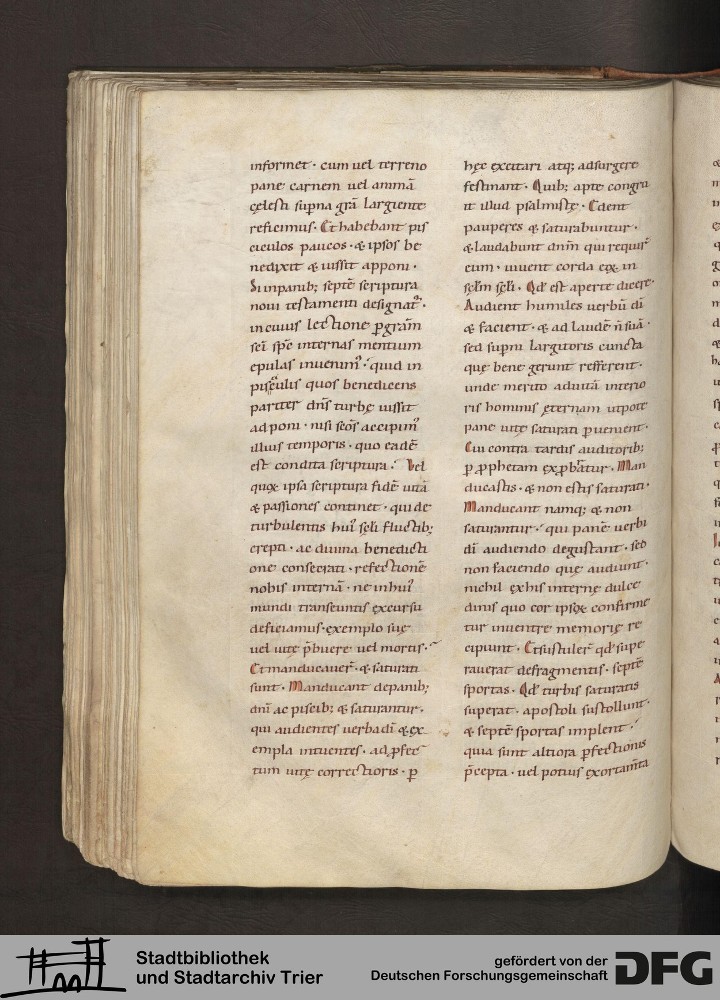 informet · cum uel terreno
pane carnem uel animā
cęlesti suꝑna grā largiente
reficimus · Et habebant pis
ciculos paucos · & ipsos be
nedixit & iussit apponi ·
Si in panib; septē scriptura
noui testamenti designat᷑ ·
in cuius lectione ꝑ grām
sc̄i sp̄c internas mentium
epulas inuenim᷒ · quid in
pisciculis quos benedicens
pariter dn̄s turbę iussit
adponi · nisi sc̄os accipim᷒
illius temporis · quo eadē
est condita scriptura · Vel
quoꝝ ipsa scriptura fidē uitā
& passiones continet · qui de
turbulentis hui᷒ sc̄li fluctib;
erepti · ac diuina benedicti
one consecrati · refectionē
nobis internā · ne in hui᷒
mundi transeuntis excursu
deficiamus · exemplo suę
uel uitę p̄buere uel mortis ·
Et manducauer̄ · & saturati
sunt · Manducant de panib;
dn̄i ac piscib; & saturantur ·
qui audientes uerba dī & ex
empla intuentes · ad ꝓfec
tum uitę correctioris · ꝑ
hęc excitari atq; adsurgere
festinant · Quib; apte congru
it illud psalmistę · Edent
pauperes & saturabuntur ·
& laudabunt dn̄m qui requir̄
eum · uiuent corda eoꝝ in
sc̄lm sc̄li · Qd̄ est aperte dicere ·
Audient humiles uerbū dī
& facient · & ad laudē n̄ suā ·
sed suꝑni largitoris cuncta
quę bene gerunt refferent ·
unde merito ad uitā interio
ris hominis ęternam utpote
pane uitę saturati ꝑuenient ·
Cui contra tardis auditorib;
ꝑ ꝓphetam exꝓbrātur · Man
ducastis · & non estis saturati ·
Manducant namq; & non
saturantur · qui panē uerbi
dī audiendo degustant · sed
non faciendo quę audiunt ·
nichil ex his internę dulce
dinis quo cor ipsoꝝ confirme
tur in uentre memorię re
cipiunt · Et sustuler̄ qd̄ supe
rauerat de fragmentis · septē
sportas · Qd̄ turbis saturatis
superat · apostoli sustollunt ·
& septē sportas implent ·
quia sunt altiora ꝑfectionis
p̄cepta · uel potius exortam̄ta
Stadtbibliothek
und Stadtarchiv Trier
gefördert von der
Deutschen Forschungsgemeinschaft
DFG